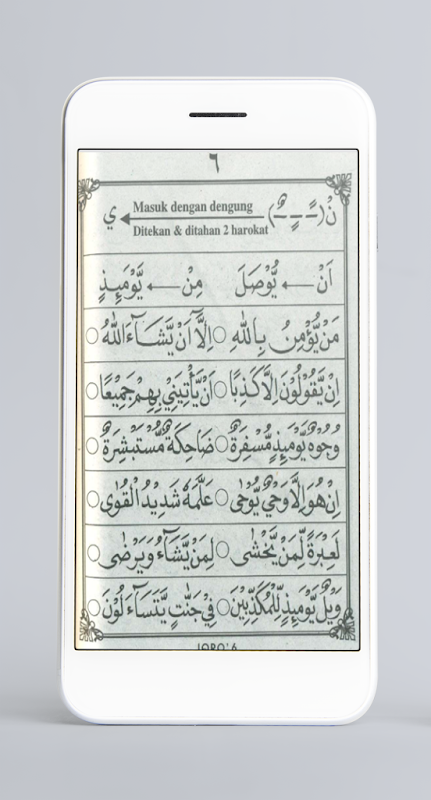 ٦
نْ (ـًـ ـٍـ ـٌـ) Masuk dengan dengung ي
Ditekan & ditahan 2 harokat
اَنْ يُّوْصَلَ مِنْ يَّوْمَىِٕذٍ
مَنْ يُّؤْمِنُ بِاللّٰهِ ○ اِلَّآ اَنْ يَّشَآءَ اللّٰهُ ○
اِنْ يَّقُوْلُوْنَ اِلَّا كَذِبًا ○ اَنْ يَّأْتِيَنِيْ بِهِمْ جَمِيْعًا ○
وُجُوْهٌ يَّوْمَىِٕذٍ مُّسْفِرَةٌ ○ ضَاحِكَةٌ مُّسْتَبْشِرَةٌ ○
اِنْ هُوَ اِلَّا وَحْيٌ يُّوْحٰى ○ عَلَّمَهٗ شَدِيْدُ الْقُوٰى ○
لَعِبْرَةً لِّمَنْ يَّخْشٰى ○ لِمَنْ يَّشَآءُ وَيَرْضٰى ○
وَيْلٌ يَّوْمَىِٕذٍ لِّلْمُكَذِّبِيْنَ ○ فِيْ جَنّٰتٍ يَّتَسَآءَلُوْنَ ○
IQRO' 6